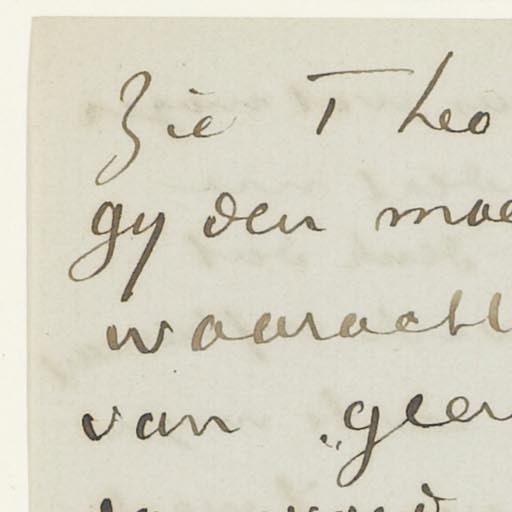 Zie Theo
gy den moe
waaracht
van „geen